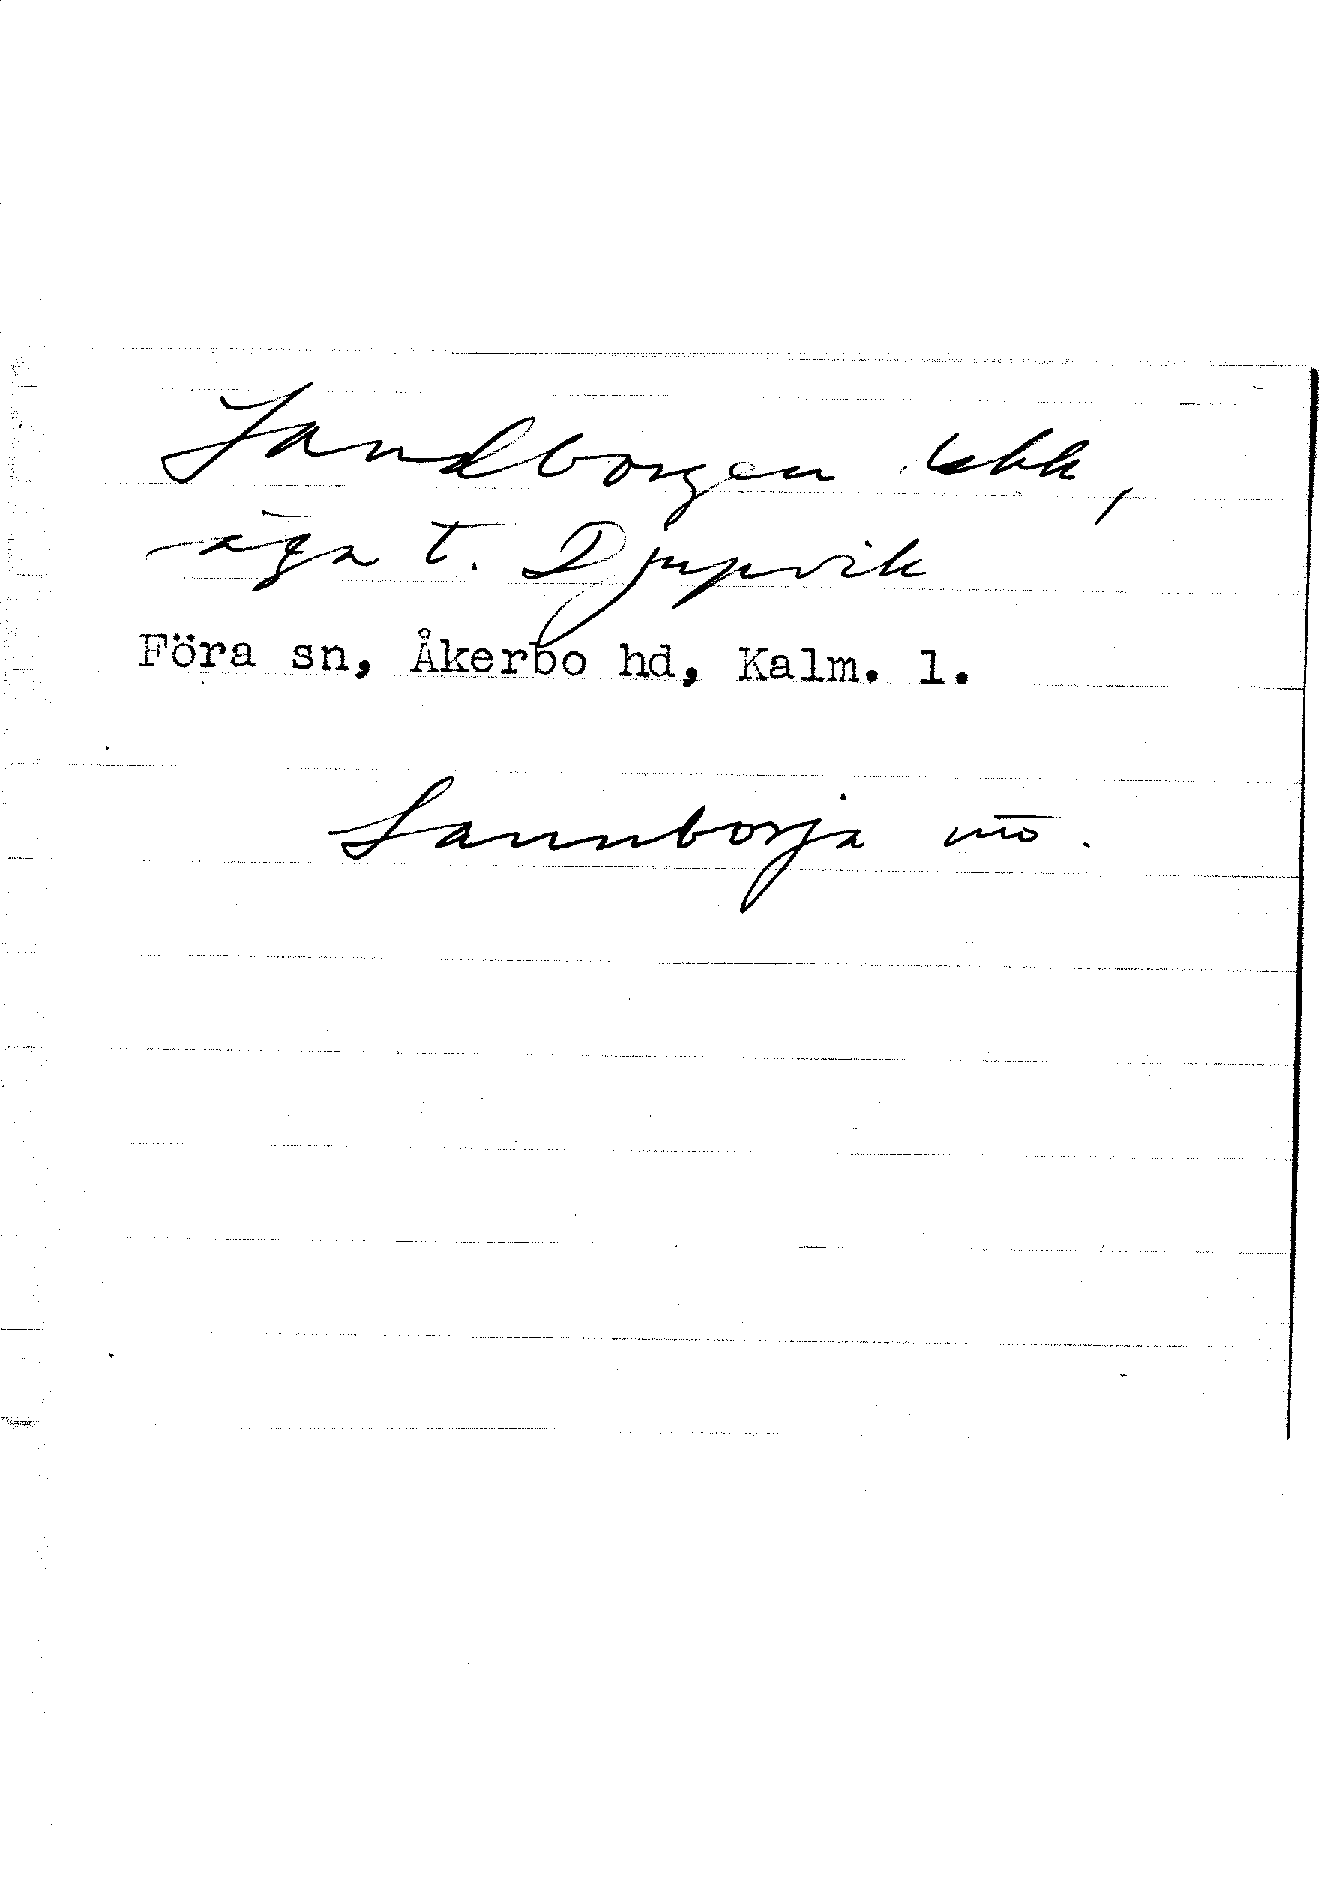 Sandborgen ebk,
äga t. Djupvik
Föra sn, Åkerbo hd, Kalm. l.
Sannborja uto.